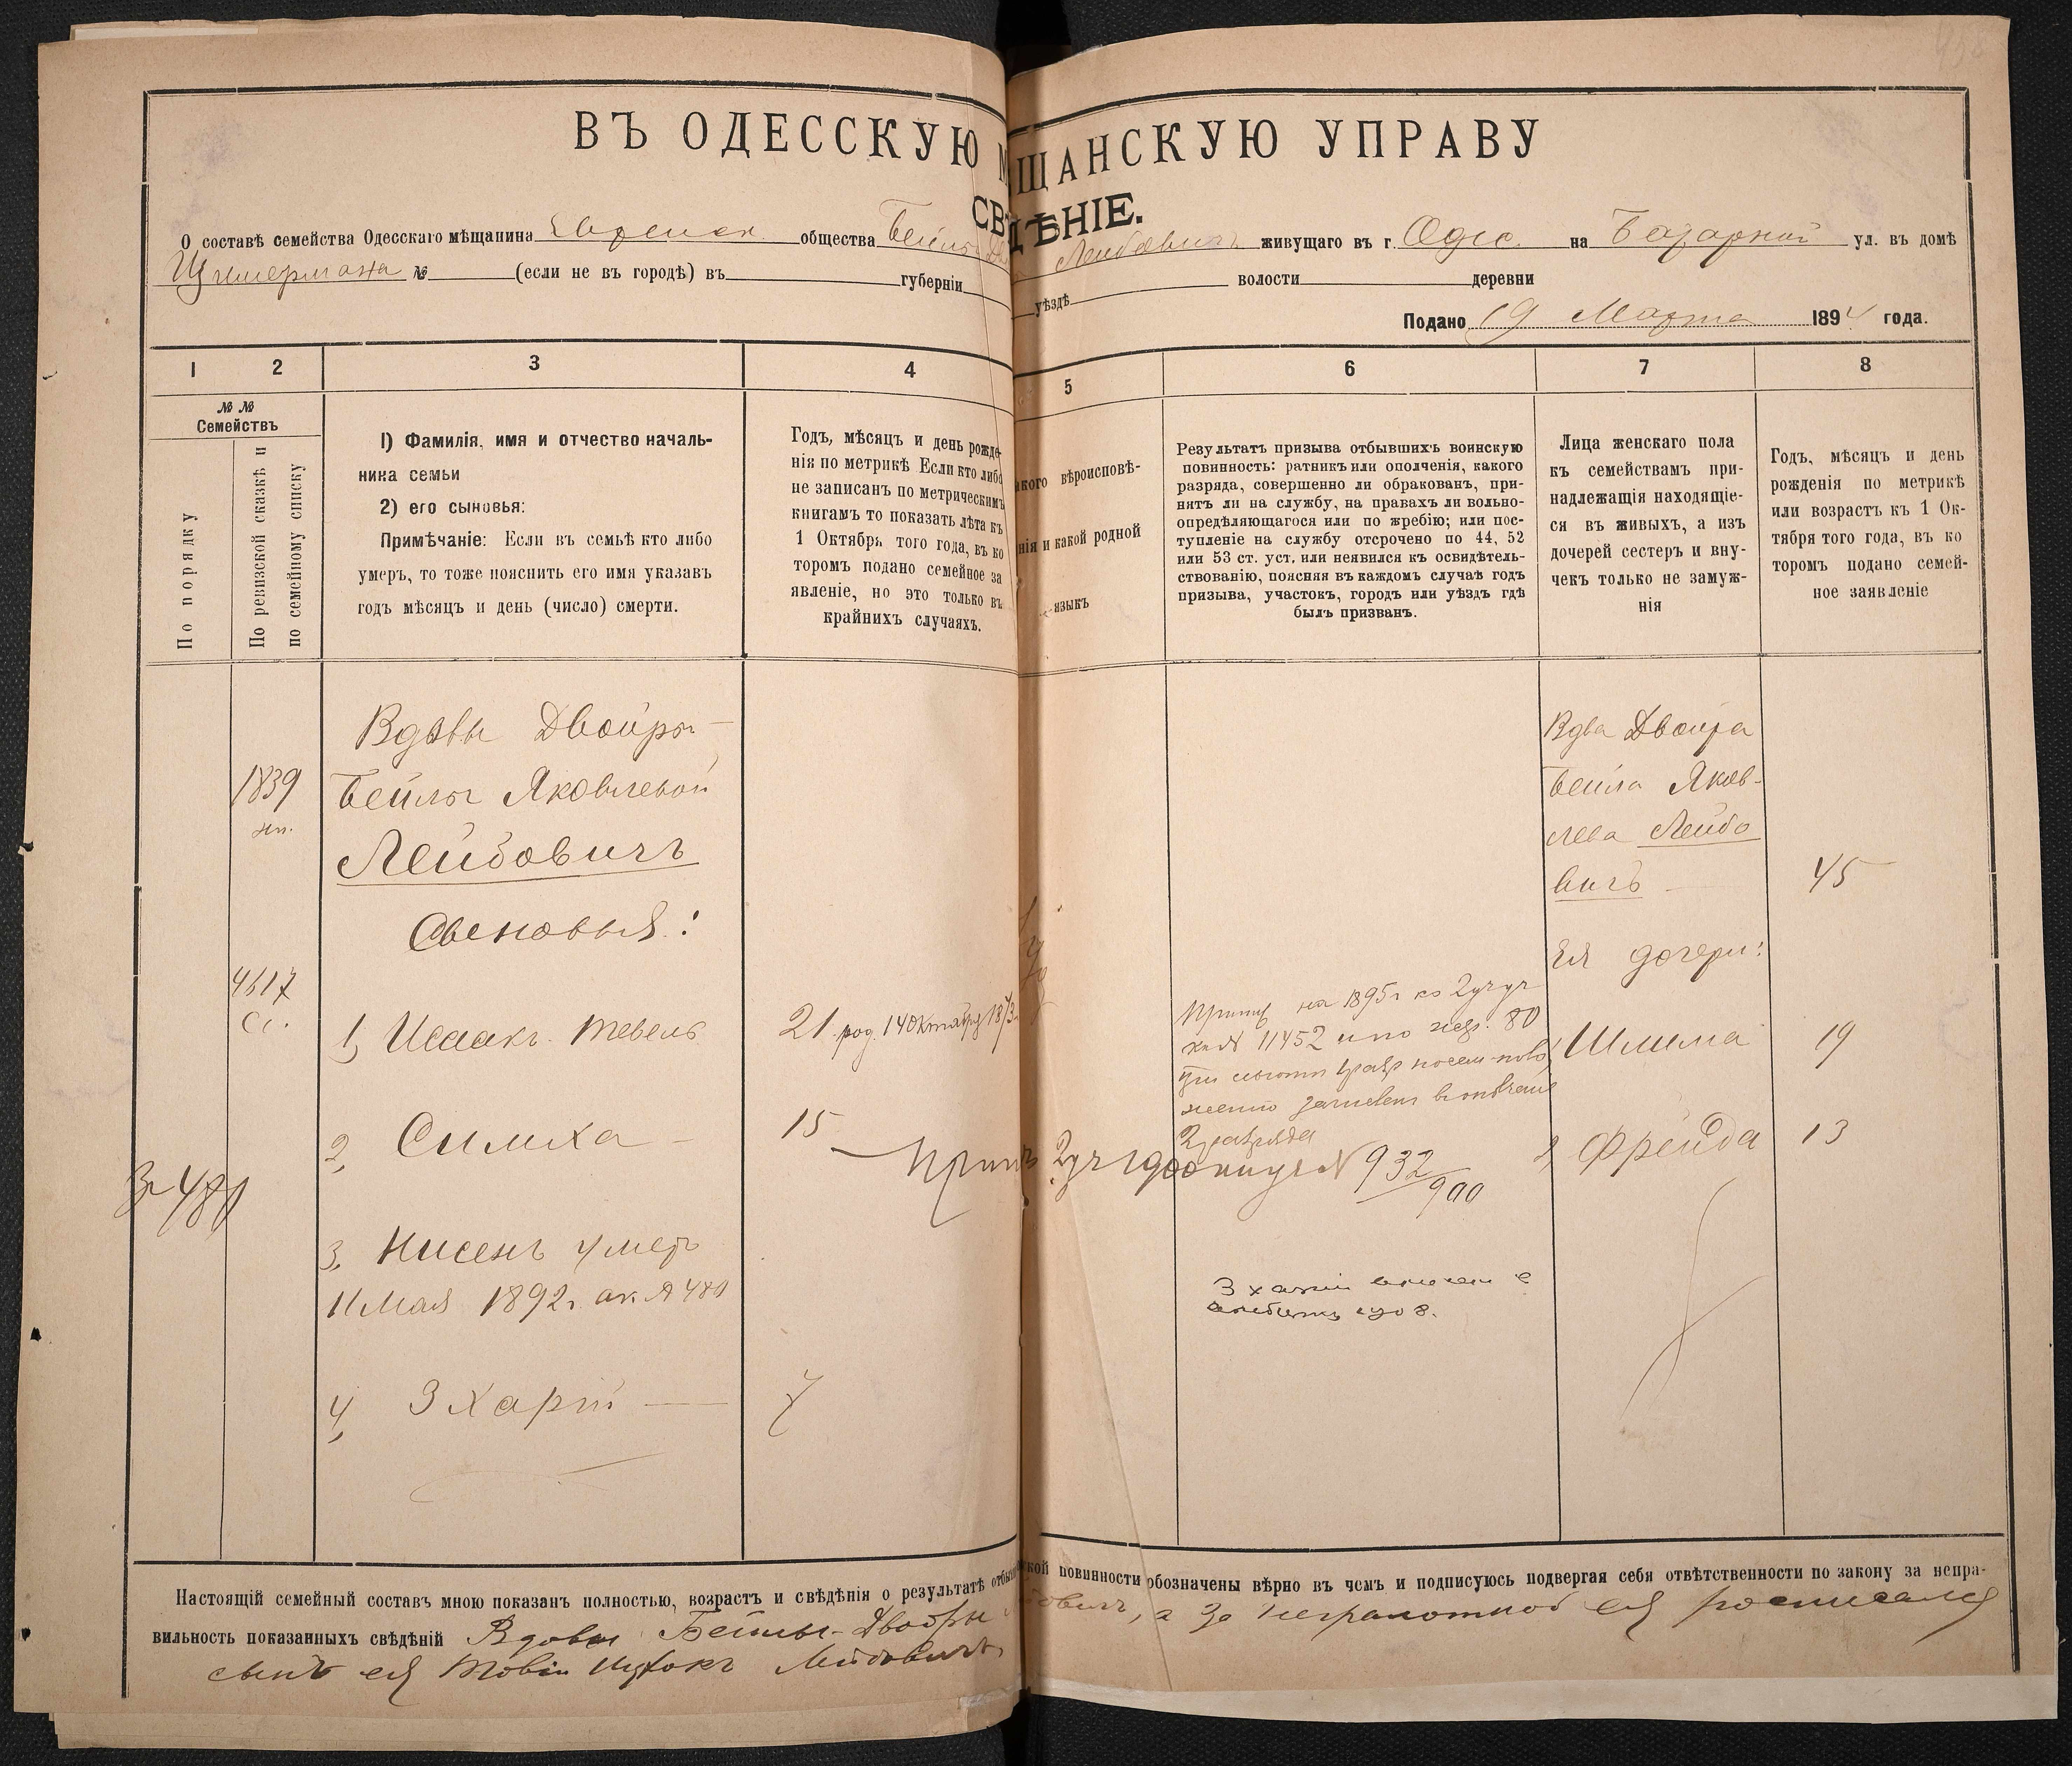 ВЪ ОДЕССКУЮ М ЩАНСКУЮ УПРАВУ
СВ ДѢНІЕ.
О составѣ семейства Одесскаго мѣщанина Еврейск. общества Бейлы Лейбовичъ живущаго въ г. Одес. на Базарной ул. въ домѣ
Цумермана № (если не въ городѣ) въ губерніи уѣздѣ волости деревни
Подано 19 Марта 1894 года.
1 2 3 4 5 6 7 8
№ №
Семействъ
По порядку
По ревизской сказкѣ и
по семейному списку
1) Фамилія, имя и отчество началь-
ника семьи
2) его сыновья:
Примѣчаніе: Если въ семьѣ кто либо
умеръ, то тоже пояснить его имя указавъ
годъ мѣсяцъ и день (число) смерти.
Годъ, мѣсяцъ и день рожде-
нія по метрикѣ Если кто либо
не записанъ по метрическимъ
книгамъ то показать лѣта къ
1 Октября того года, въ ко
торомъ подано семейное за
явленіе, но это только въ
крайнихъ случаяхъ.
акого вѣроисповѣ-
нія и какой родной
языкъ
Результатъ призыва отбывшихъ воинскую
повинность: ратникъ или ополченія, какого
разряда, совершенно ли обракованъ, при-
нятъ ли на службу, на правахъ ли вольно-
опредѣляющагося или по жребію; или пос-
тупленіе на службу отсрочено по 44, 52
или 53 ст. уст. или неявился къ освидѣтель-
ствованію, поясняя въ каждомъ случаѣ годъ
призыва, участокъ, городъ или уѣздъ гдѣ
былъ призванъ.
Лица женскаго пола
къ семействамъ при-
надлежащія находящіе-
ся въ живыхъ, а изъ
дочерей сестеръ и вну-
чекъ только не замуж-
нія
Годъ, мѣсяцъ и день
рожденія по метрикѣ
или возрастъ къ 1 Ок-
тября того года, въ ко
торомъ подано семей-
ное заявленіе
1839
4617
Сс.
Вдовы Двойры
Бейлы Яковлевой
Лейбовичъ
Сыновья:
1, Исаакъ. Тевель
21. род. 14 Октября 1873
Приз на 1895 г ко 2 уч
11452 и по жер. 80
2 разряда
2, Симха
15
932/900
3, Нисень умеръ
11 Мая 1892 г. ак. № 480
480
4, Зхарій
7
Вдва Двойра
Бейла Яков-
лева Лейбо
вичъ
45
Ея дочери:
Шлима 19
2, Фрейда 13
Настоящій семейный составъ мною показанъ полностью, возрастъ и свѣдѣнія о результатѣ отбы ской повинности обозначены вѣрно въ чемъ и подписуюсь подвергая себя отвѣтственности по закону за непра-
вильность показанныхъ свѣдѣній Вдовы Бейлы-Двойры бовичъ, а за неграмотной ея росписался
сынъ ея Товій Ицхокъ Лейбовичъ